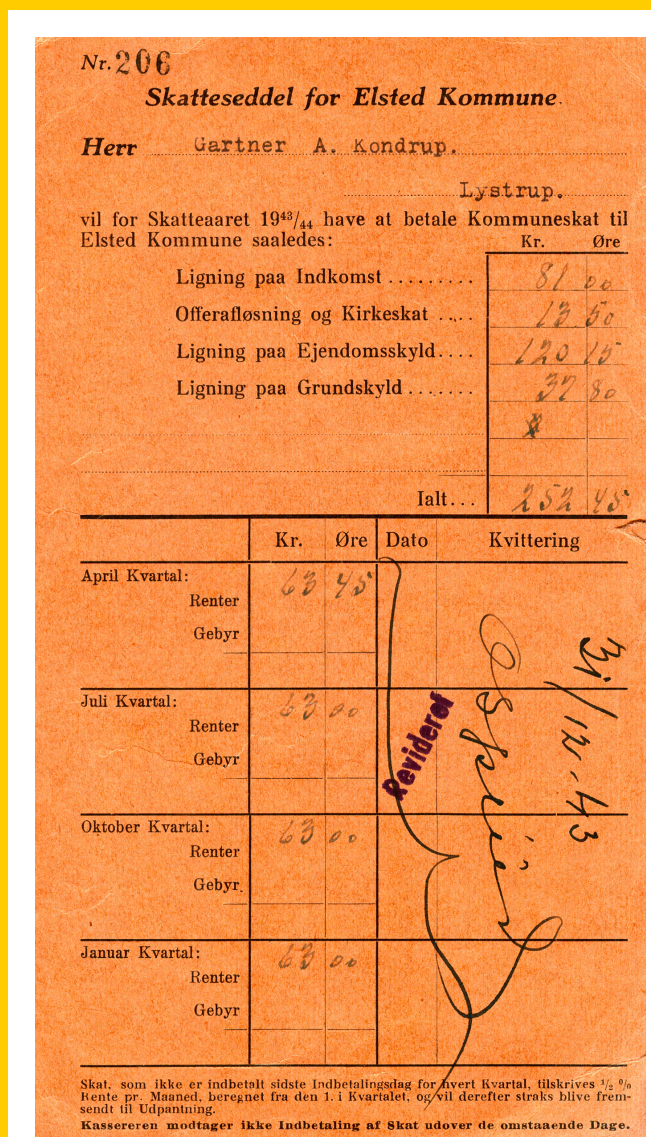 Nr. 206
Skatteseddel for Elsted Kommune.
Herr Gartner A. Kondrup.
Lystrup.
vil for Skatteaaret 19⁴³/₄₄ have at betale Kommuneskat til
Elsted Kommune saaledes:
Kr. Øre
Ligning paa Indkomst ......... 81 00
Offerafløsning og Kirkeskat .... 13 50
Ligning paa Ejendomsskyld.... 120 15
Ligning paa Grundskyld ....... 37 80
Ialt... 252 45
Kr. Øre Dato Kvittering
April Kvartal: 63 45
Renter
Gebyr
31/12-43
Juli Kvartal: 63 00
Renter
Gebyr
Revideret
Oktober Kvartal: 63 00
Renter
Gebyr.
Januar Kvartal: 63 00
Renter
Gebyr
Skat, som ikke er indbetalt sidste Indbetalingsdag for hvert Kvartal, tilskrives ½ %
Rente pr. Maaned, beregnet fra den 1. i Kvartalet, og vil derefter straks blive frem-
sendt til Udpantning.
Kassereren modtager ikke Indbetaling af Skat udover de omstaaende Dage.